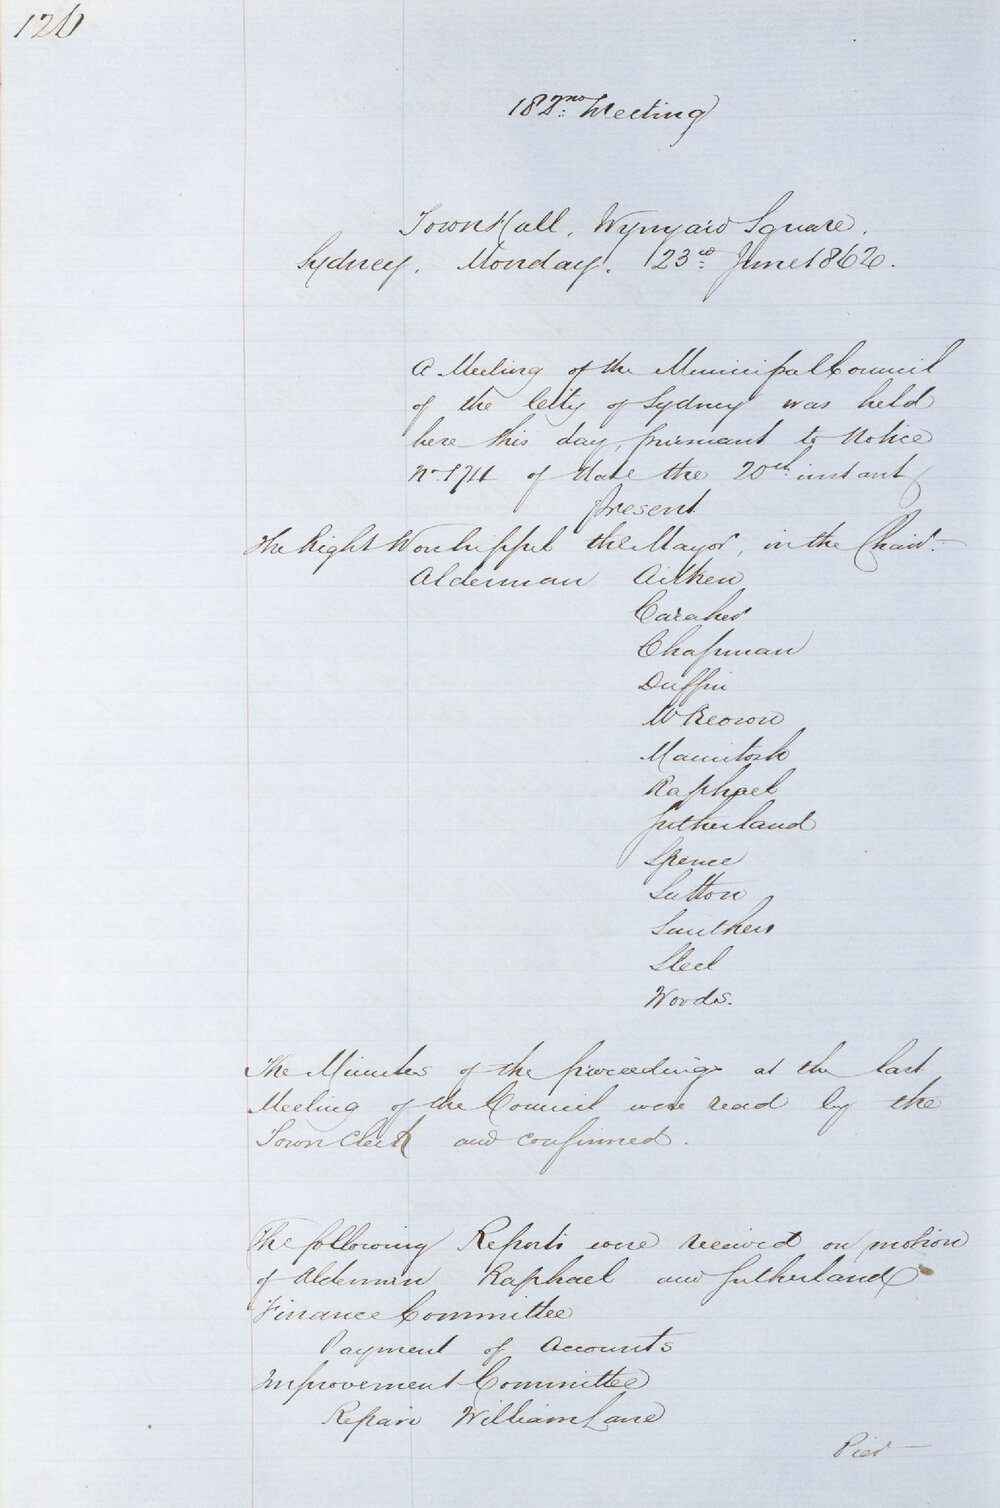 126
182nd: Meeting
Town Hall, Wynyard Square,
Sydney, Monday, 23rd: June 1862.
A Meeting of the Municipal Council
of the City of Sydney was held
here this day, pursuant to Notice
No. 174 of date the 20th instant
present
The Right Worshippful the Mayor, in the Chair.
Alderman Aitken
Caraher
Chapman
Duffin
McKeown
Macintosh
Raphael
Sutherland
Spence
Sutton
Smithers
Steel
Woods.
The Minutes of the proceedings at the last
Meeting of the Council were read by the
Town Clerk and confirmed.
The following Reports were received on motion
of Aldermen Raphael and Sutherland
Finance Committee
Payment of Accounts
Improvement Committee
Repair William Lane
Pier